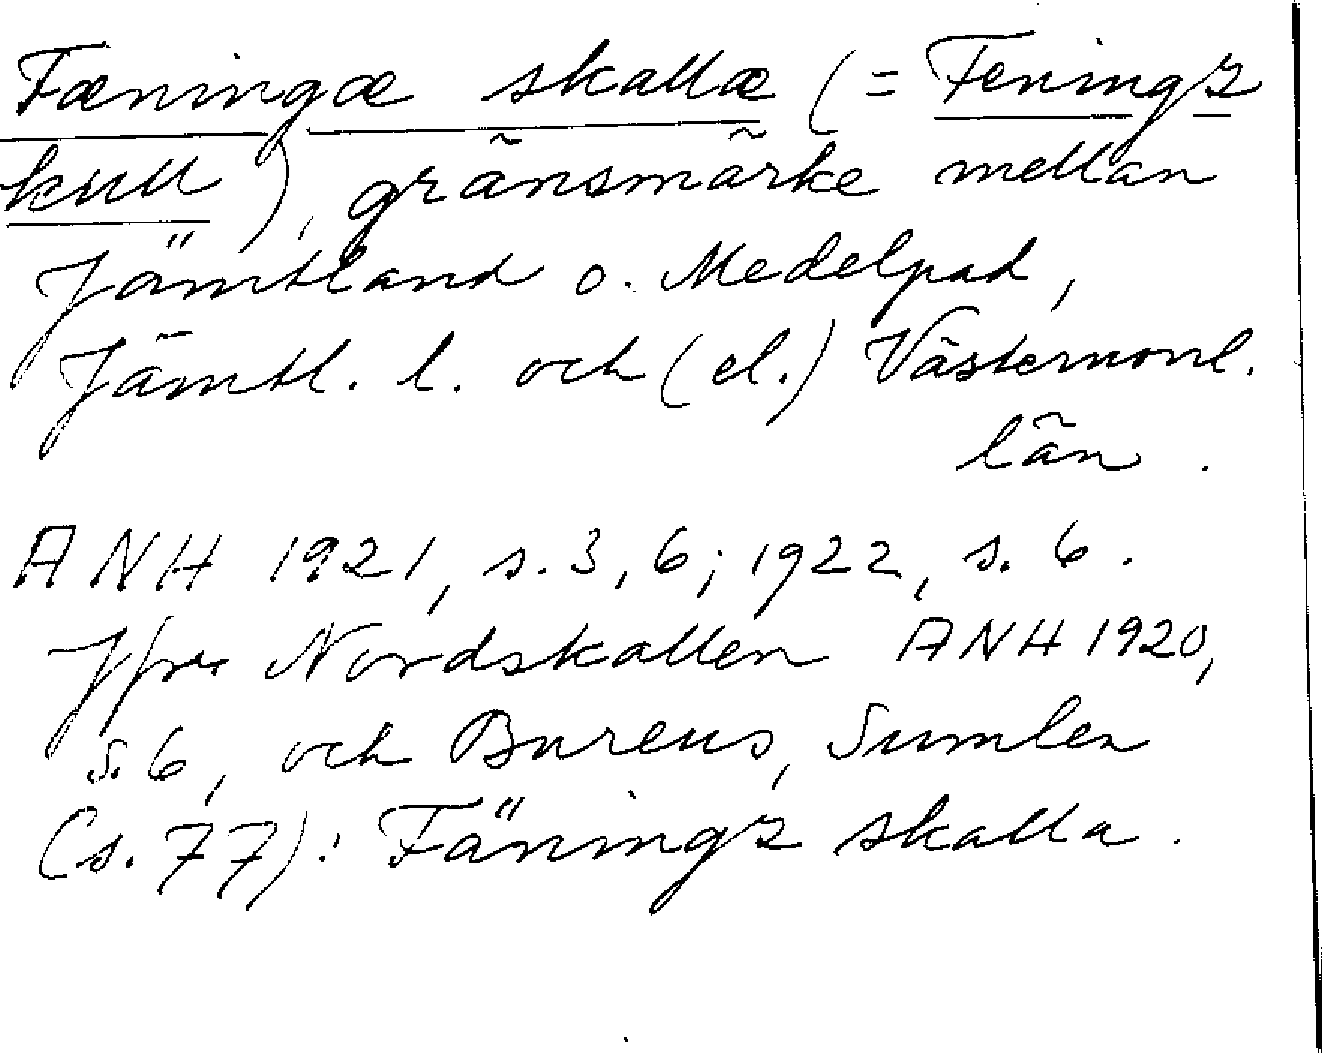 Fæningæ skallæ (= Feningz
kull), gränsmärke mellan
Jämtland o. Medelpad,
Jämtl. l. och (el.) Västernorrl.
län.
ANH 1921, s. 3, 6; 1922, s. 6.
Jfr Nordskallen ANH 1920,
s. 6, och Bureus, Sumlen
(s. 77): Fäningz skalla.